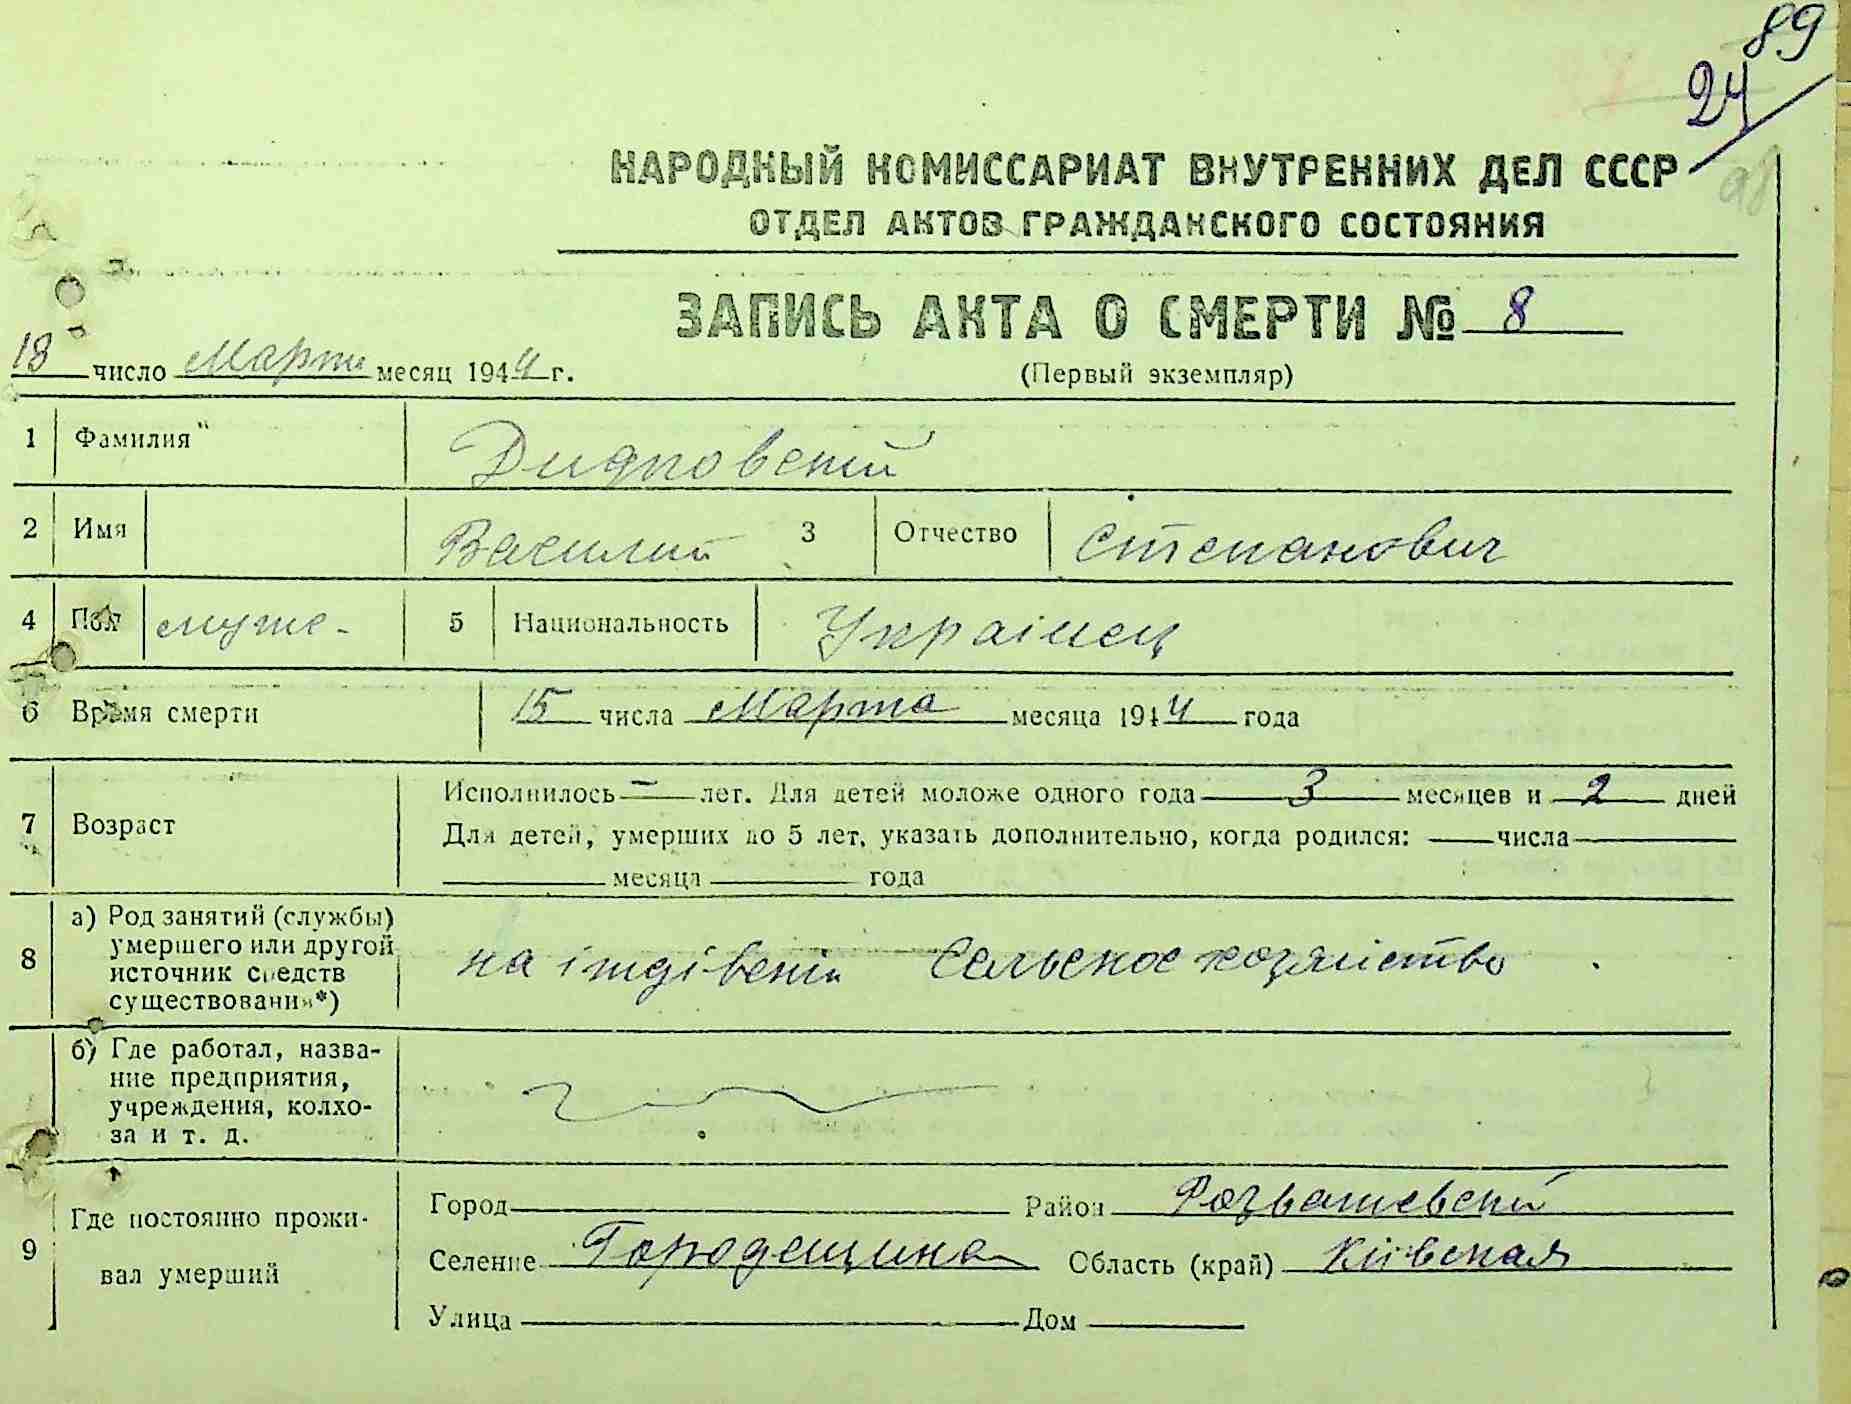 89
24
НАРОДНЫЙ КОМИССАРИАТ ВНУТРЕННИХ ДЕЛ СССР
ОТДЕЛ АКТОВ ГРАЖДАНСКОГО СОСТОЯНИЯ
ЗАПИСЬ АКТА О СМЕРТИ № 8
18 число Марта месяц 1944 г.
(Первый экземпляр)
1 Фамилия Дидковский
2 Имя Василий 3 Отчество Степанович
4 Пол муже- 5 Национальность Украінец
6 Время смерти 15 числа Марта месяца 1944 года
7 Возраст Исполнилось — лет. Для детей моложе одного года 3 месяцев и 2 дней
Для детей, умерших до 5 лет, указать дополнительно, когда родился: числа
месяца года
8 а) Род занятий (службы)
умершего или другой
источник средств
существования*)
на іждівенії Сельское хозяйство
б) Где работал, назва-
ние предприятия,
учреждения, колхо-
за и т. д.
9 Где постоянно прожи-
вал умерший
Город Район Розважевский
Селение Городещина Область (край) Кіївская
Улица Дом